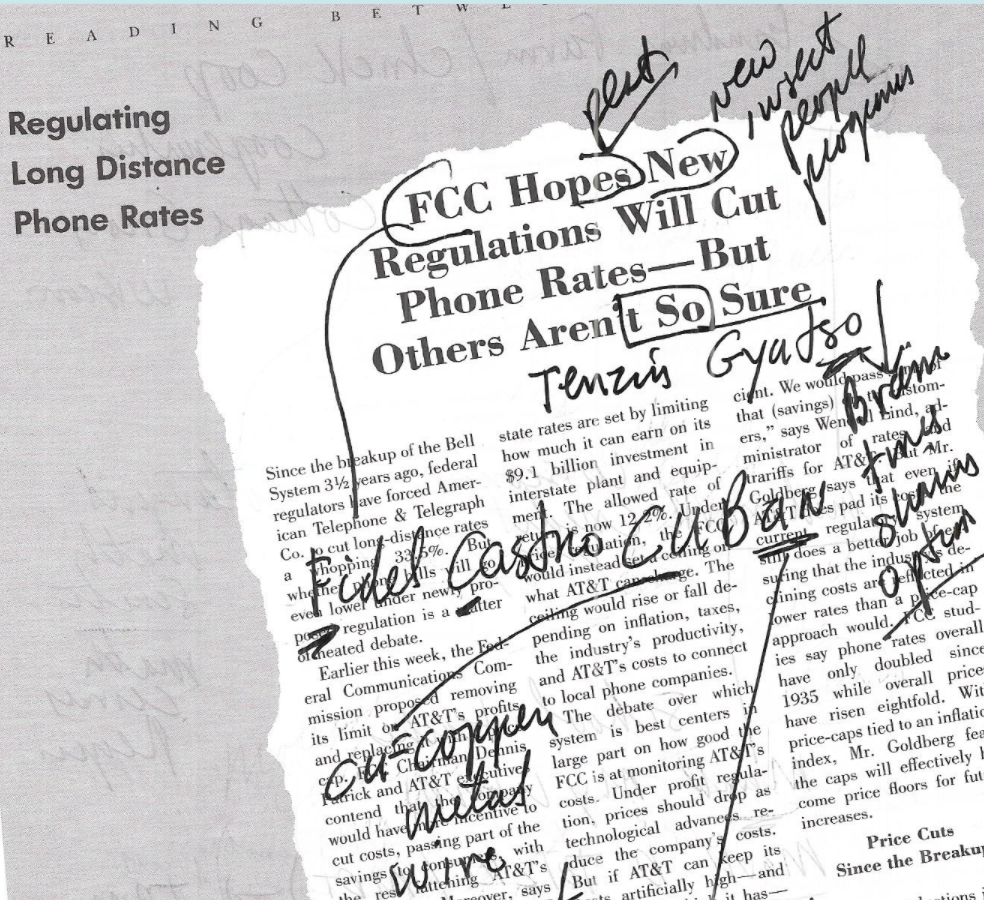 READING BETWE
Regulating
Long Distance
Phone Rates
pest
new
insect
people
programs
FCC Hopes New
Regulations Will Cut
Phone Rates—But
Others Aren't So Sure
Tenzin Gyatso
Brain
times
shains
Fidel Castro CUBan
Cu-copper
metal
wire
Since the breakup of the Bell
System 3½ years ago, federal
regulators have forced Amer-
ican Telephone & Telegraph
Co. to cut long-distance rates
a whopping 33.5%. But
whether phone bills will go
even lower under newly pro-
posed regulation is a matter
of heated debate.
Earlier this week, the Fed-
eral Communications Com-
mission proposed removing
its limit on AT&T's profits
and replacing it with
cap. Chairman Dennis
Patrick and AT&T executives
contend that the company
would have more incentive to
cut costs, passing part of the
savings to consumers, with
the rest fattening AT&T's
Moreover, says
state rates are set by limiting
how much it can earn on its
$9.1 billion investment in
interstate plant and equip-
ment. The allowed rate of
is now 12.2%. Under
the FCC
would instead set a ceiling on
what AT&T can charge. The
ceiling would rise or fall de-
pending on inflation, taxes,
the industry's productivity,
and AT&T's costs to connect
to local phone companies.
The debate over which
system is best centers in
large part on how good the
FCC is at monitoring AT&T's
costs. Under profit regula-
tion, prices should drop as
technological advances re-
duce the company's costs.
But if AT&T can keep its
costs artificially high—and
it has—
cient. We would pass
that (savings) custom-
ers," says Wendell Lind, ad-
ministrator of rates and
trariffs for AT&T. But Mr.
Goldberg says that even if
AT&T does pad its costs, the
current regulatory system
still does a better job of en-
suring that the industry's de-
clining costs are reflected in
lower rates than a price-cap
approach would. FCC stud-
ies say phone rates overall
have only doubled since
1935 while overall prices
have risen eightfold. With
price-caps tied to an inflation
index, Mr. Goldberg fea
the caps will effectively b
come price floors for futu
increases.
Price Cuts
Since the Breakup